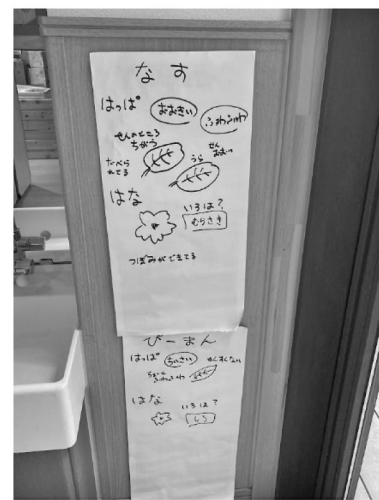 なす
はっぱ おおきい ふわふわ
せんのところ
ちがう
たべら
れてる
うら
せん
おおい
はな
いろは?
むらさき
つぼみができてる
ぴーまん
はっぱ ちいさい
ふわふわ
はな
いろは?
しろ